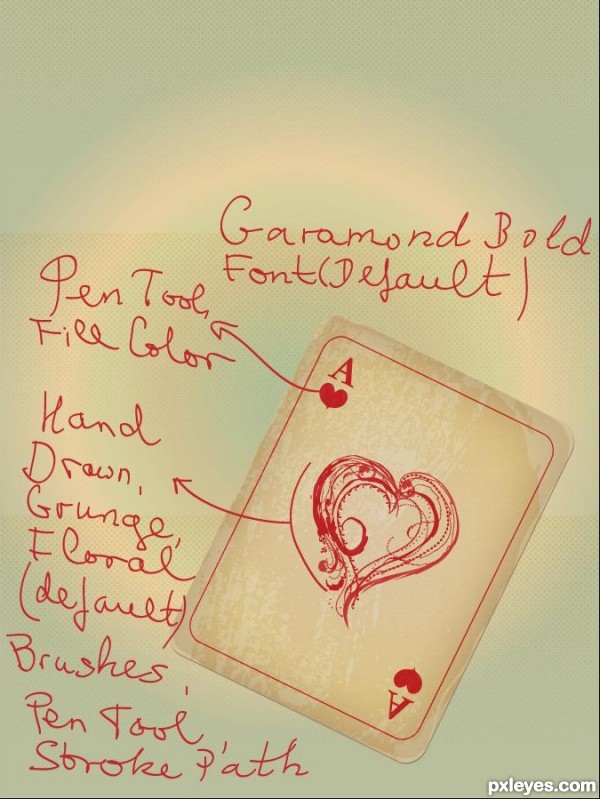 Garamond Bold
Font(Default)
Pen Tool,
Fill Color
A
Hand
Drawn,
Grunge,
Floral
(default)
Brushes,
Pen Tool
Stroke Path
A
pxleyes.com